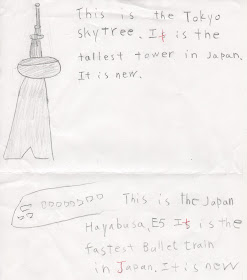 This is the Tokyo
skytree. It is the
tallest tower in Japan.
It is new.
This is the Japan
Hayabusa, E5 It is the
fastest Bullet train
in Japan. It is new